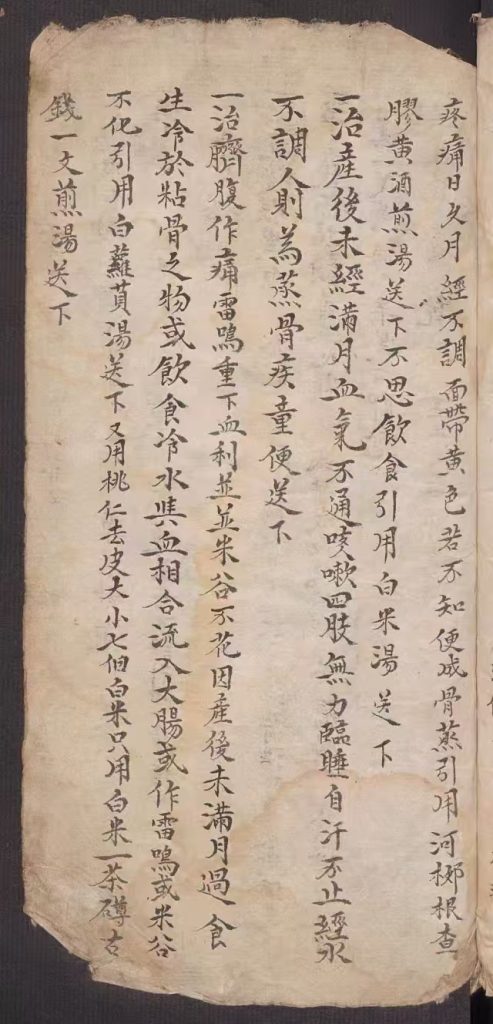 疼痛日久月經不調面帶黃色若不知便成骨蒸引用河柳根查
膠黃酒煎湯送下不思飲食引用白米湯送下
一治產後未經滿月血氣不通咳嗽四肢無力臨睡自汗不止經水
不調人則為蒸骨疾童便送下
一治臍腹作痛雷鳴重下血利並並米谷不花因產後未滿月過食
生冷於粘骨之物或飲食冷水與血相合流入大腸或作雷鳴或米谷
不化引用白蘿蔔湯送下又用桃仁去皮大小七個白米只用白米一茶罇古
錢一文煎湯送下